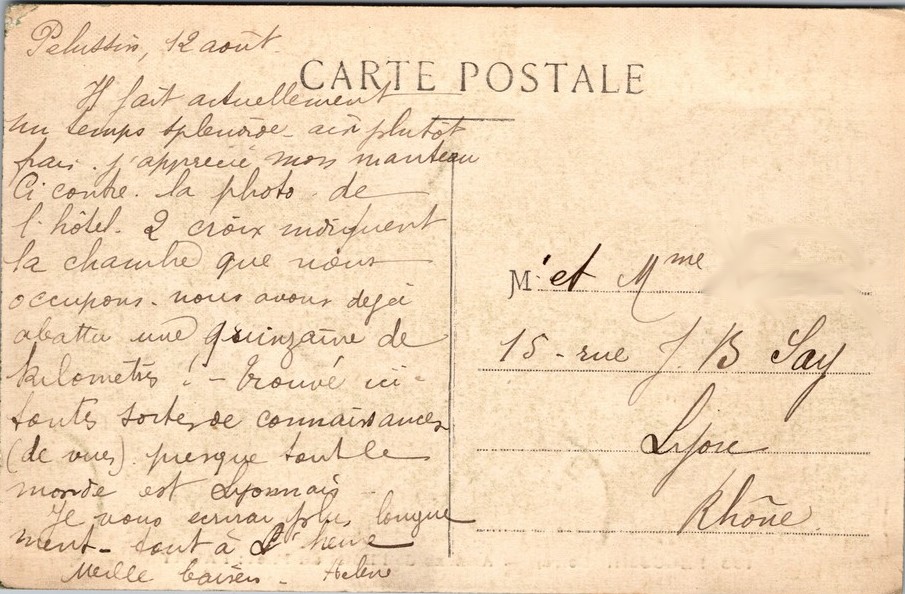 Pelussin, 12 août.
CARTE POSTALE
Il fait actuellement
un temps splendide - air plutôt
frais. j'apprécie mon manteau
Ci contre. la photo de
l'hôtel. 2 croix indiquent
la chambre que nous
occupons - nous avons dejà
abattu une quinzaine de
kilomètres ! - trouvé ici -
toutes sortes de connaissances
(de vues) presque tout le
monde est Lyonnais
Je vous ecrirai plus longue
ment - tout à l'heure
Meille baisers - Helene
M. et Mme
15 - rue J. B Say
Lyon
Rhône